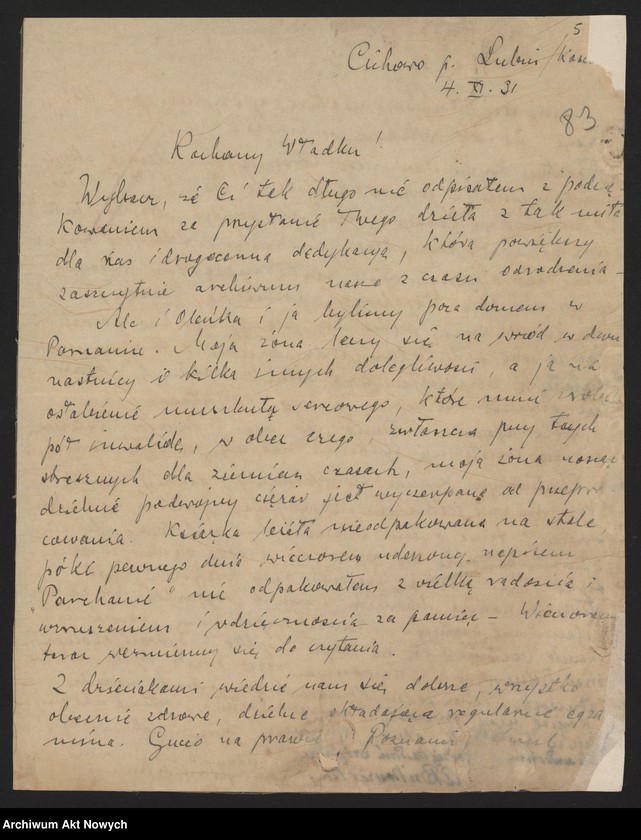 5
Cichowo p. Lubiń /Kośc.
4. XI. 31
83
Kochany Władku!
Wybacz, że Ci tak długo nie odpisałem z podzię-
kowaniem za przysłanie Twego dzieła z tak miłą
dla nas i drogocenną dedykacją, która powiększy
zaszczytnie archiwum nasze z czasu odrodzenia –
Ale i Oleńka i ja byliśmy poza domem w
Poznaniu. Moja żona leczy się na wrzód w dwu-
nastnicy i kilka innych dolegliwości, a ja na
osłabienie muskułu sercowego, które mnie robi
pół inwalidę, w obec czego, zwłaszcza przy tych
strasznych dla ziemian czasach, moja żona nosząc
dzielnie podwójny ciężar jest wyczerpana od przepra-
cowania. Książka leżała nieodpakowana na stole,
póki pewnego dnia wieczorem uderzony napisem
"Parchanie" nie odpakowałem z wielką radością i
wzruszeniem i wdzięcznością za pamięć – Wieczorem
teraz weźmiemy się do czytania.
Z dzieciakami wiedzie nam się dobrze, wszystko
obecnie zdrowe, dzielnie składające regularnie egza
mina. Gucio na prawie w Poznaniu,
Archiwum Akt Nowych